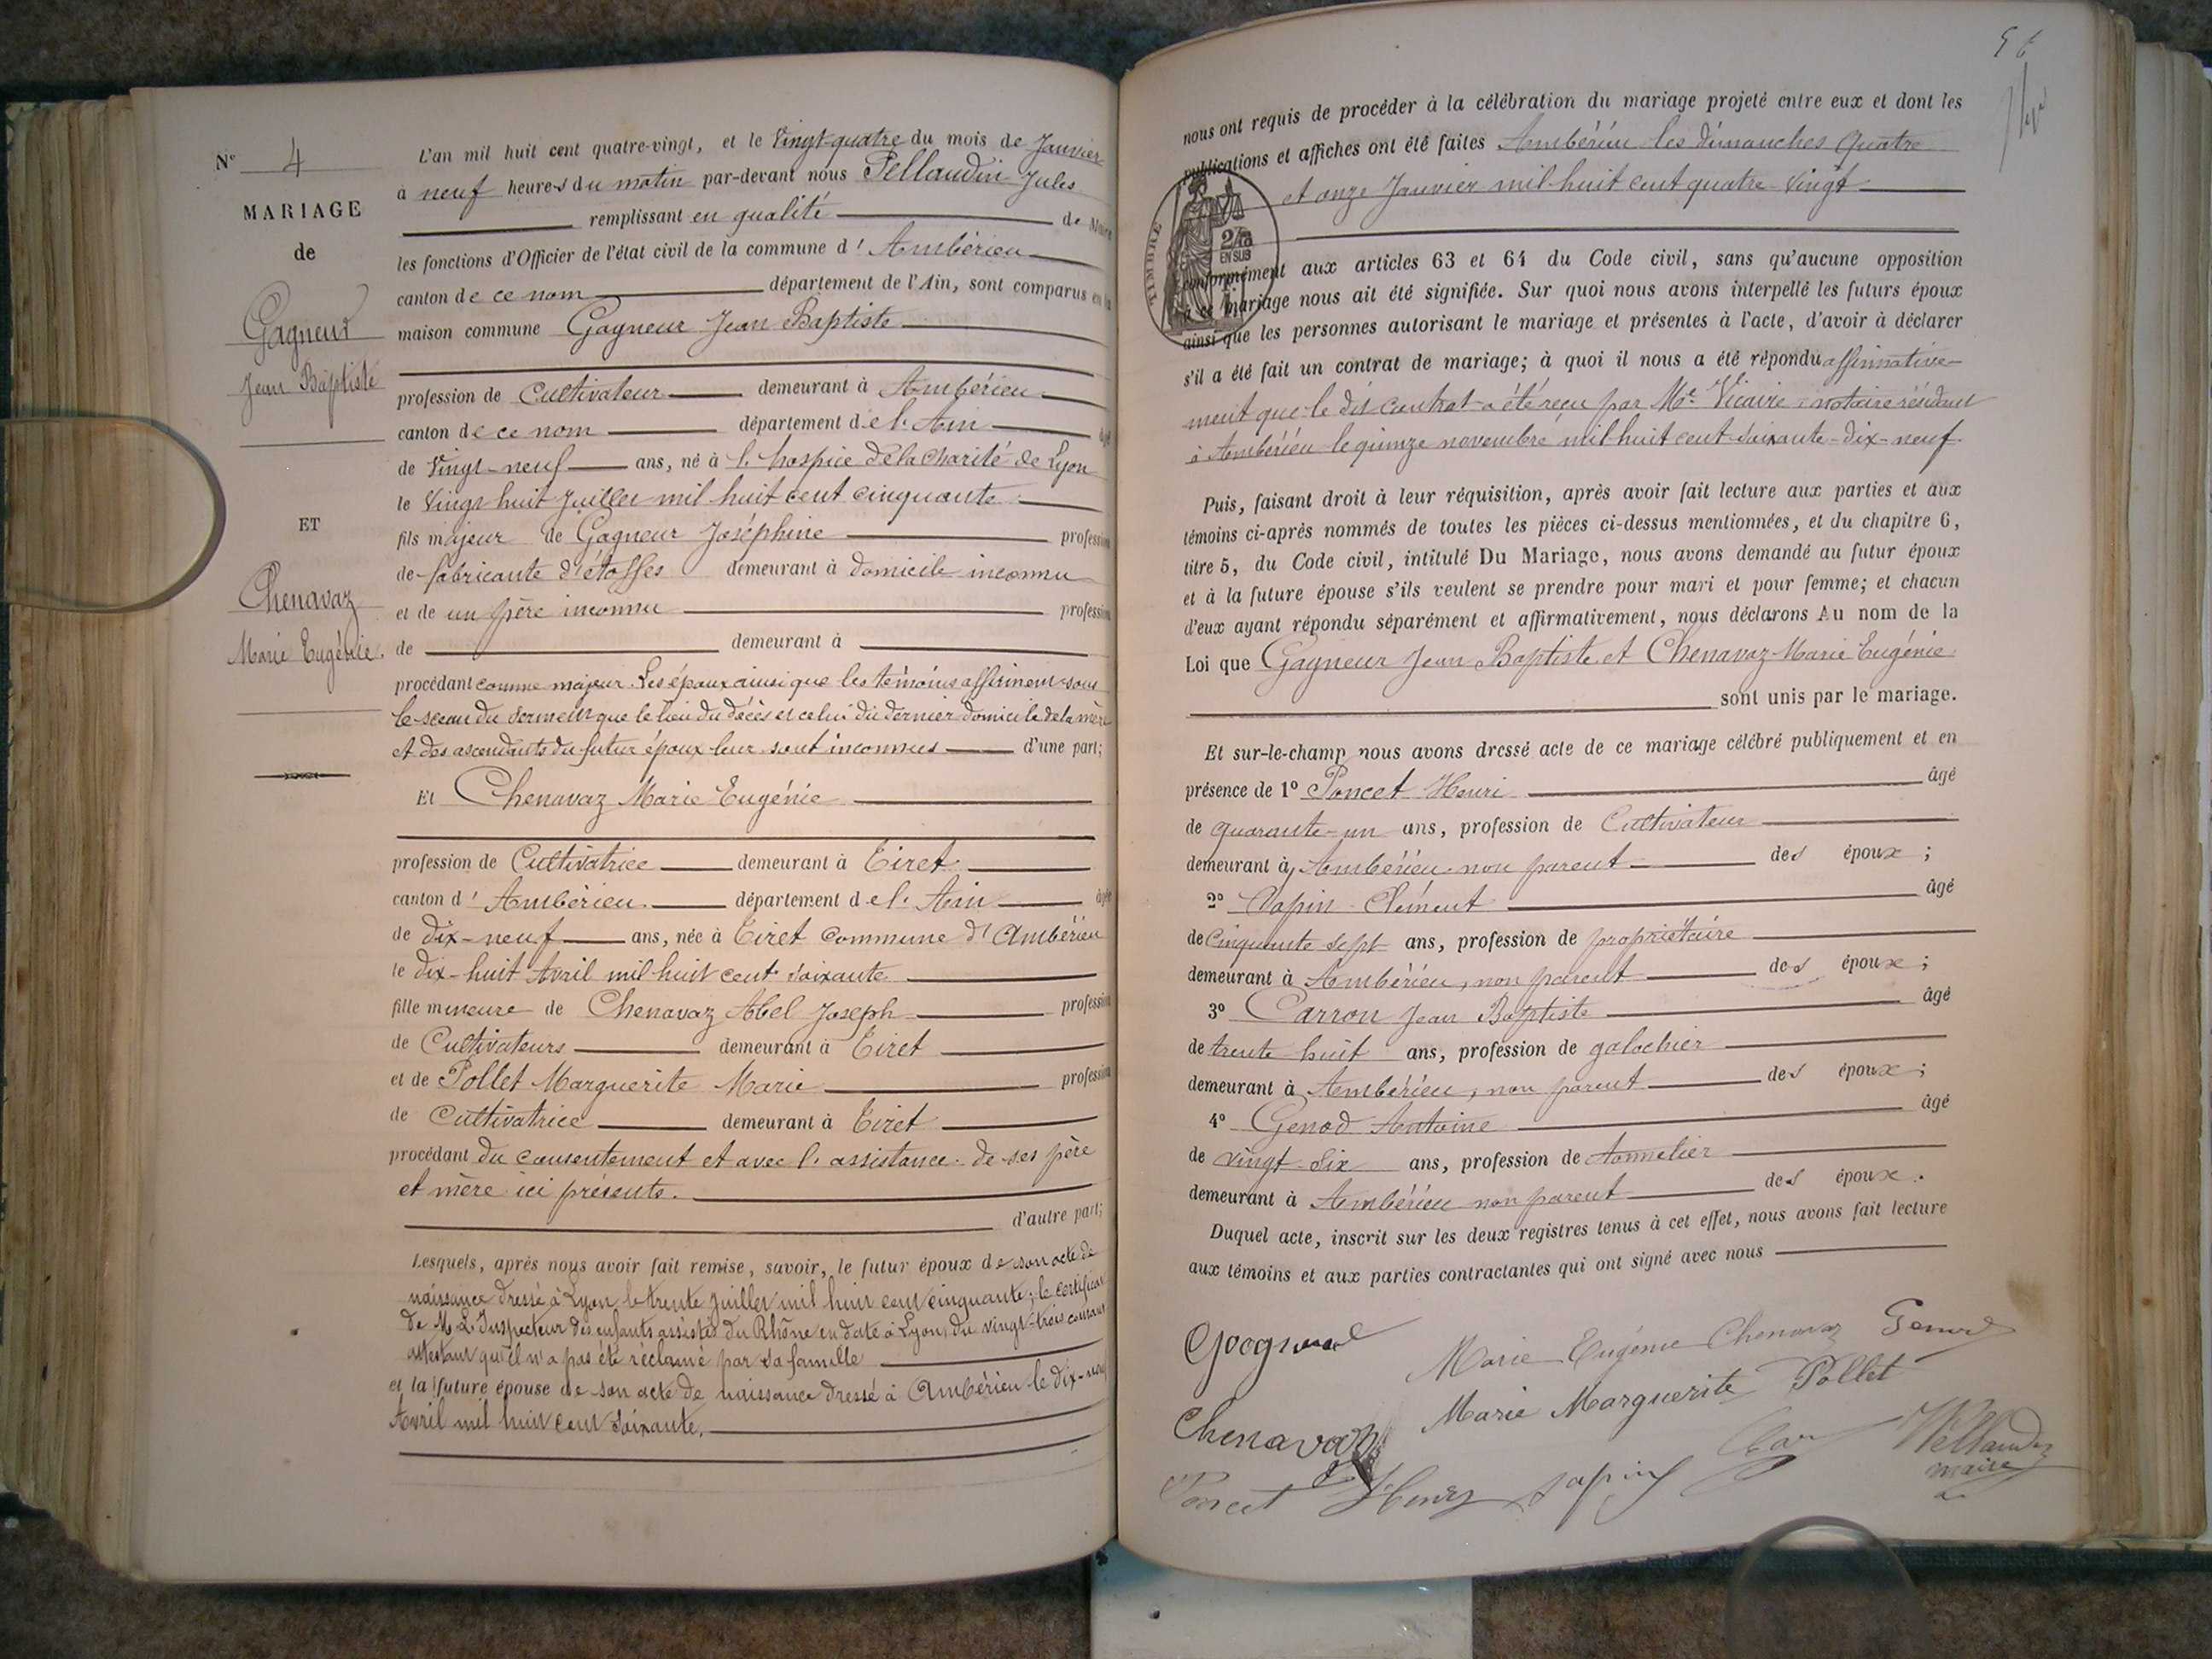 N° 4
MARIAGE
de
Gagneur
Jean Baptiste
ET
Chenavaz
Marie Eugénie.
L'an mil huit cent quatre-vingt, et le Vingt-quatre du mois de Janvier
à neuf heures du matin par-devant nous Pellaudin Jules
remplissant en qualité de Maire
les fonctions d'Officier de l'état civil de la commune d' Ambérieu
canton de ce nom département de l'Ain, sont comparus en la
maison commune Gagneur Jean Baptiste
profession de Cultivateur demeurant à Ambérieu
canton de ce nom département de l'Ain âgé
de Vingt-neuf ans, né à l'hospice de la Charité de Lyon
le Vingt huit Juillet mil huit cent cinquante
fils majeur de Gagneur Joséphine profession
de fabricante d'étoffes demeurant à domicile inconnu
et de un père inconnu profession
de demeurant à
procédant comme majeur. Les époux ainsi que les témoins affirment sous
le sceau du serment que le lieu du décès et celui du dernier domicile de la mère
et des ascendants du futur époux leur sont inconnus d'une part;
Et Chenavaz Marie Eugénie
profession de Cultivatrice demeurant à Tiret
canton d' Ambérieu département de l'Ain âgée
de dix-neuf ans, née à Tiret commune d'Ambérieu
le dix-huit Avril mil huit cent soixante
fille mineure de Chenavaz Abel Joseph profession
de Cultivateurs demeurant à Tiret
et de Pollet Marguerite Marie profession
de Cultivatrice demeurant à Tiret
procédant du consentement et avec l'assistance de ses père
et mère ici présents.
d'autre part;
Lesquels, après nous avoir fait remise, savoir, le futur époux de son acte de
naissance dressé à Lyon le trente Juillet mil huit cent cinquante; le certificat
de M. L'Inspecteur des enfants assistés du Rhône en date à Lyon, du vingt-trois courant
attestant qu'il n'a pas été réclamé par sa famille
et la future épouse de son acte de naissance dressé à Ambérieu le dix-neuf
Avril mil huit cent soixante.
nous ont requis de procéder à la célébration du mariage projeté entre eux et dont les
publications et affiches ont été faites Ambérieu les dimanches quatre
et onze Janvier mil-huit cent quatre-vingt
TIMBRE
2/10
EN SUS
conformément aux articles 63 et 64 du Code civil, sans qu'aucune opposition
à ce mariage nous ait été signifiée. Sur quoi nous avons interpellé les futurs époux
ainsi que les personnes autorisant le mariage et présentes à l'acte, d'avoir à déclarer
s'il a été fait un contrat de mariage; à quoi il nous a été répondu affirmative-
ment que le dit contrat a été reçu par Me Vicaire notaire résidant
à Ambérieu le quinze novembre mil huit cent soixante-dix-neuf.
Puis, faisant droit à leur réquisition, après avoir fait lecture aux parties et aux
témoins ci-après nommés de toutes les pièces ci-dessus mentionnées, et du chapitre 6,
titre 5, du Code civil, intitulé Du Mariage, nous avons demandé au futur époux
et à la future épouse s'ils veulent se prendre pour mari et pour femme; et chacun
d'eux ayant répondu séparément et affirmativement, nous déclarons Au nom de la
Loi que Gagneur Jean Baptiste et Chenavaz Marie Eugénie
sont unis par le mariage.
Et sur-le-champ nous avons dressé acte de ce mariage célébré publiquement et en
présence de 1° Poncet Henri âgé
de quarante-un ans, profession de Cultivateur
demeurant à Ambérieu non parent des époux;
2° Sapin Clément âgé
de Cinquante sept ans, profession de propriétaire
demeurant à Ambérieu, non parent des époux;
3° Carron Jean Baptiste âgé
de trente huit ans, profession de galochier
demeurant à Ambérieu, non parent des époux;
4° Genod Antoine âgé
de vingt-six ans, profession de tonnelier
demeurant à Ambérieu non parent des époux.
Duquel acte, inscrit sur les deux registres tenus à cet effet, nous avons fait lecture
aux témoins et aux parties contractantes qui ont signé avec nous
Marie Eugénie Chenavaz Genod
Marie Marguerite Pollet
Chenavaz
Poncet Henry Sapin
Pellaudin
maire